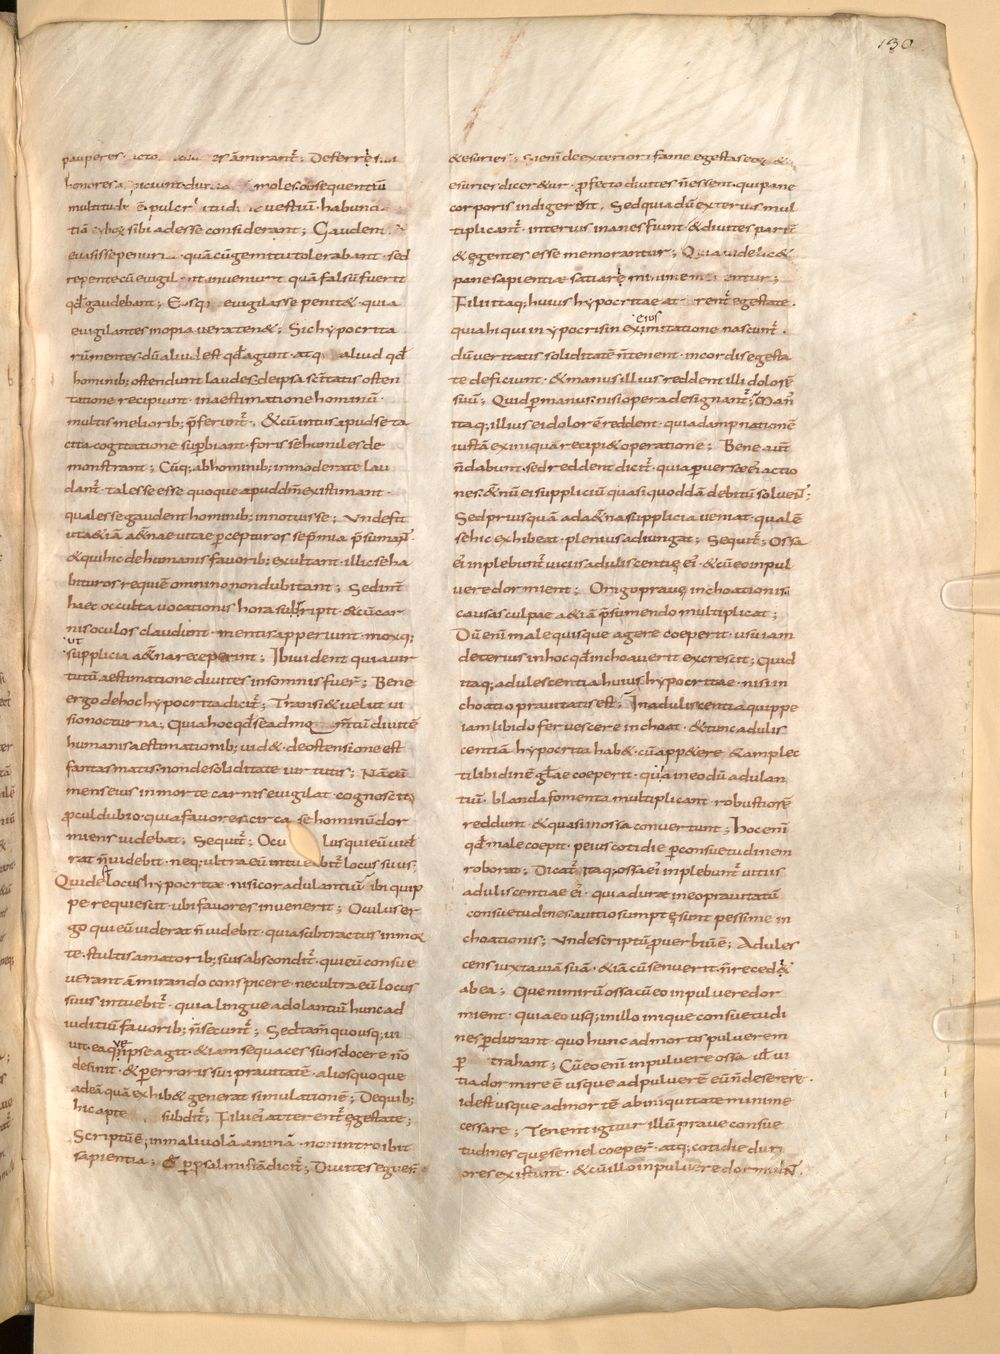 130
pauperes. amirant̄; Deferre
honores moles obsequentiū
multitude ē pulcritudi vestiū. habunda
tiā cybo sibi adesse considerant; Gaudent
evasisse penuri quā cū gemitu tolerabant. sed
repente cū evigil nt inveniunt quā falsū fuerit
qd̄ gaudebant; evigilasse penit&. quia
evigilantes inopia veraten&; Sic hypocrita
rū mentes. dū aliud est qd̄ agunt. atq aliud qd̄
hominib; ostendunt laudes. de ipsa sc̄itatis osten
tatione recipiunt. in aestimatione hominū
multis meliorib; p̄ferunt̄. & cū intus apud se ta
cita cogitatione sup̄biant. foris se humiles de
monstrant; Cūq; ab hominib; inmoderate lau
dant̄. tales se esse quoque apud dm̄ existimant.
quales se gaudent hominib; innotuisse; Unde fit
ut & iā a&nae vitae p̄cepturos se p̄mia p̄sumant
& qui hic de humanis favorib; exultant. illic se ha
bituros requiē omnino non dubitant; Sed int̄
haec occulta vocationis hora subripit. & cū car
nis oculos claudunt. mentis apperiunt. moxq;
ut
supplicia a&na receperint; Ibi vident quia vir
tutū aestimatione divites in somnis fuer̄; Bene
ergo de hoc hypocrita dicit̄; Transi& velut vi
sio nocturna; Quia hoc qd̄ se ad m̄tū divitē
humanis aestimationib; vid&. de ostensione est
fantasmatis. non de soliditate virtutis; Nā cū
mens eius in morte carnis evigilat. cognoscit
p̄cul dubio. quia favores circa se hominū dor
miens videbat; Sequit̄; Oculus qui eū vid
rat n̄ videbit. neq; ultra eū intuebit̄ locus suus;
Quid ē locus hypocritae. nisi cor adulantiū; ibi quip
pe requiescit. ubi favores invenerit; Oculus er
go qui eū viderat n̄ videbit. quia subtractus in mor
te. stultis amatorib; suis abscondit̄. qui eū consue
verant āmirando conspicere. nec ultra eū locus
suus intuebit̄. quia lingue adolantiū hunc ad
iuditiū favorib; n̄ secunt̄; Sed tam̄ quousq; vi
ve
vit. ea q n̄ ipse agit. & iam sequaces suos docere nō
desinit. & p̄ erroris sui pravitatē. alios quoque
ad eā quā exhib& generat simulationē; De quib;
hic apte subdit̄; Filii ei atterent̄ egestate;
Scriptū ē; in malivolā animā. non introibit
sapientia; & p̄ psalmistā dicit̄; Divites eguer̄
& esurier̄; Si eni de exteriori fame egestas eoꝝ &
esuries dicer&ur. p̄fecto divites n̄ essent. qui pane
corporis indigerent. Sed quia dū exterius mul
tiplicant̄. interius inanes fiunt. & divites parit̄
& egentes esse memorantur; Quia videlic&
pane sapientiae satiare mi merentur;
Filii itaq; huius hypocritae atterent̄ egestate.
eius
quia hi qui in ypocrisin ex imitatione nascunt̄.
dū veritatis soliditatē n̄ tenent. in cordis egesta
te deficiunt. & manus illius reddent illi dolorē
suū; Quid p̄ manus. nisi opera designant̄; Man̄
itaq; illius ei dolorē reddent. quia dampnationē
iustā ex iniqua recipi& operatione; Bene aut̄
n̄ dabunt. sed reddent dicit̄. quia pversae ei actio
nes. a&nū ei suppliciū quasi quoddā debitū solvent;
Sed priusquā ad a&na supplicia veniat. qualē
se hic exhibeat. plenius adiungat; Sequit̄; Ossa
ei inplebunt̄ vitiis aduliscentiae ei. & cū eo in pul
vere dormient; Origo pravę inchoationis
causas culpae a&iā p̄sumendo multiplicat;
Dū eni male quisque agere coeperit. usu iam
deterius in hoc qd̄ inchoaverit excrescit; Quid
itaq; adulescentia huius hypocritae. nisi in
choatio pravitatis est; In aduliscentia quippe
iam libido fervescere inchoat. & tunc adulis
centiā hypocrita hab&. cū app&ere & amplec
ti libidinē glae coeperit. quā in eo dū adulan
tiū. blanda fomenta multiplicant. robustiorē
reddunt. & quasi in ossa convertunt; Hoc eni
qd̄ male coepit. peius cotidie p̄ consuetudinem
roborat; Dicat̄ itaq ossa ei inplebunt̄ vitiis
aduliscentiae ei. quia durae in eo pravitatū
consuetudines. a vitio sumptę sunt pessime in
choationis; Unde scriptū p̄verbiū ē; Adules
cens iuxta viā suā. & iā cū senuerit. n̄ reced&
ab ea; Que nimirū ossa cū eo in pulvere dor
mient. quia eo usq; in illo inique consuetudi
nes p̄durant. quo hunc ad mortis pulverem
p̄trahant; Cū eo eni in pulvere ossa vl̄ vi
tia dormire ē usque ad pulverē eū n̄ deserere.
id est usque ad mortē ab iniquitate minime
cessare; Tenent igitur illū prave consue
tudines que semel coeper̄. atq; cotidie duri
ores existunt. & cū illo in pulvere dormiunt.